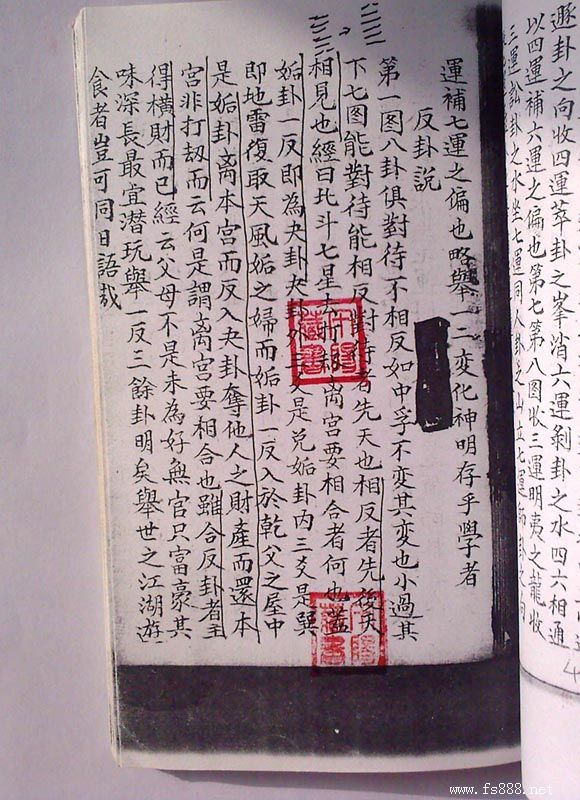 遯卦之向收四運萃卦之峯消六運剝卦之水四六相通
以四運補六運之偏也第七第八图收三運明夷之龍收
三運訟卦之水坐七運同人卦之山立七運師卦之向
運補七運之偏也略舉一二變化神明存乎學者
反卦説
第一图八卦俱對待不相反如中孚不変其変也小過其
下七图能對待能相反對待者先天也相反者先後天
相見也經曰北斗七星去打刼离宫要相合者何也蓋
姤卦一反即為夬卦夬卦外三爻是兑姤卦内三爻是巽
即地雷復取天風姤之婦而姤卦一反入於乾父之屋中
是姤卦离本宫而反入夬卦奪他人之財產而還本
宫非打刼而云何是謂离宫要相合也雖合反卦者主
得横財而已經云父母不是未為好無官只富豪其
味深長最宜潜玩舉一反三餘卦明矣舉世之江湖遊
食者豈可同日語哉
藏書
藏書
www.fs888.net